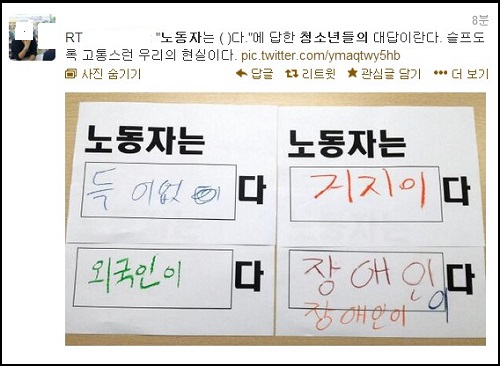 8분
RT "노동자는 ( )다."에 답한 청소년들의 대답이란다. 슬프도
록 고통스런 우리의 현실이다. pic.twitter.com/ymaqtwy5hb
사진 숨기기 답글 리트윗 관심글 담기 더 보기
노동자는
득 이없 이 다
노동자는
거지이 다
외국인이 다
장애인이 다
장애인이